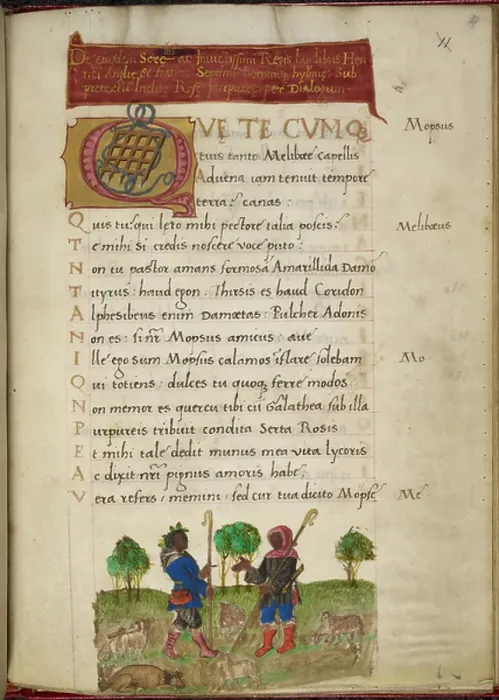 De eiusdem Sere^mi ac Inuictissimi Regis laudibus Hen
rici Anglie
Sub
pretextu Inclite Rose purpuree per Dialogum
QVĘ TE CVMQꝫ
Mopsus
tuis tanto Melibœe capellis
Aduena iam tenuit tempore
terra? canas:
Quis tu? qui lęto mihi pectore talia poscis?
Melibœus
Te mihi si credis noscere voce puto:
Non tu pastor amans formosã Amarillida Damõ
Tityrus: haud egon: Thirsis es haud Coridon
Alphesibeus enim Damœtas: Pulcher Adonis
Non es: si nr̃ Mopsus amicus: aue
Ille ego sum Mopsus calamos ĩflare solebam
Mo
Qui totiens: dulces tu quoqꝫ ferre modos
Non memor es quercu tibi cũ Galathea sub illa
Purpureis tribuit condita Serta Rosis
Et mihi tale dedit munus mea vita lycoris
Ac dixit nr̃i pignus amoris habe:
Vera refers, memini, sed cur tua dicito Mopse
Me